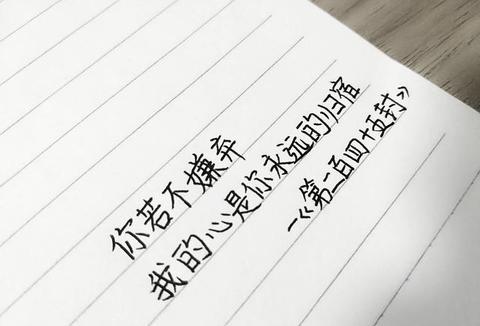 你若不嫌弃
我的心是你永远的归宿
—《第二百四十页封》